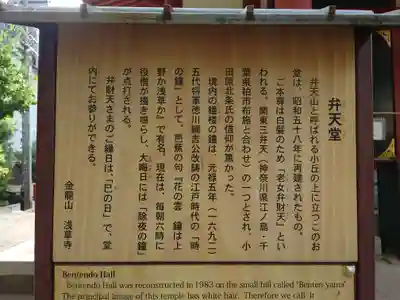 弁天堂
弁天山と呼ばれる小丘の上に立つこのお
堂は、昭和五十八年に再建されたもの。
ご本尊は白髪のため「老女弁財天」とい
われる。関東三弁天（神奈川県江ノ島・千
葉県柏市布施と合わせ）の一つとされ、小
田原北条氏の信仰が篤かった。
境内の鐘楼の鐘は、元禄五年（一六九二）
五代将軍徳川綱吉公改鋳の江戸時代の「時
の鐘」として、芭蕉の句『花の雲 鐘は上
野か浅草か』で有名。現在は、毎朝六時に
役僧が撞き鳴らし、大晦日には「除夜の鐘」
が点打される。
弁財天さまのご縁日は、「巳の日」で、堂
内にてお参りができる。
金龍山 浅草寺
Bentendo Hall
Bentendo Hall was reconstructed in 1983 on the small hill called "Benten yama"
The principal image of this temple has white hair. Therefore we call it